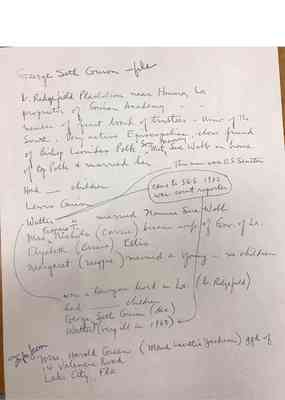 George Seth Guion - file
b. Ridgefield Plantation near Houma, La
proprietor of Guion Academy
member of first board of trustees - Univ. of the
South. Very active Episcopalian, close friend
of Bishop Leonidas Polk. Met Sue Wolk in home
of Bp Polk & married her
This man was U.S. Senator
Had __ children
Lewis Guion
came to SGS 1903
was court reporter
Walter married Nannie Sue Wolk
Mrs. Nicholls (Carrie) became wife of Gov. of La.
Elizabeth (Bessie) Ellis
Margaret (Maggie) married a Young - no children
was a lawyer lived in La. (b. Ridgefield)
had __ children
George Seth Guion (dec)
Walter (very ill in 1969)
Mrs. Harold Green (Maud Jackson) ggd of
14 Valencia Road
Lake City, Fla